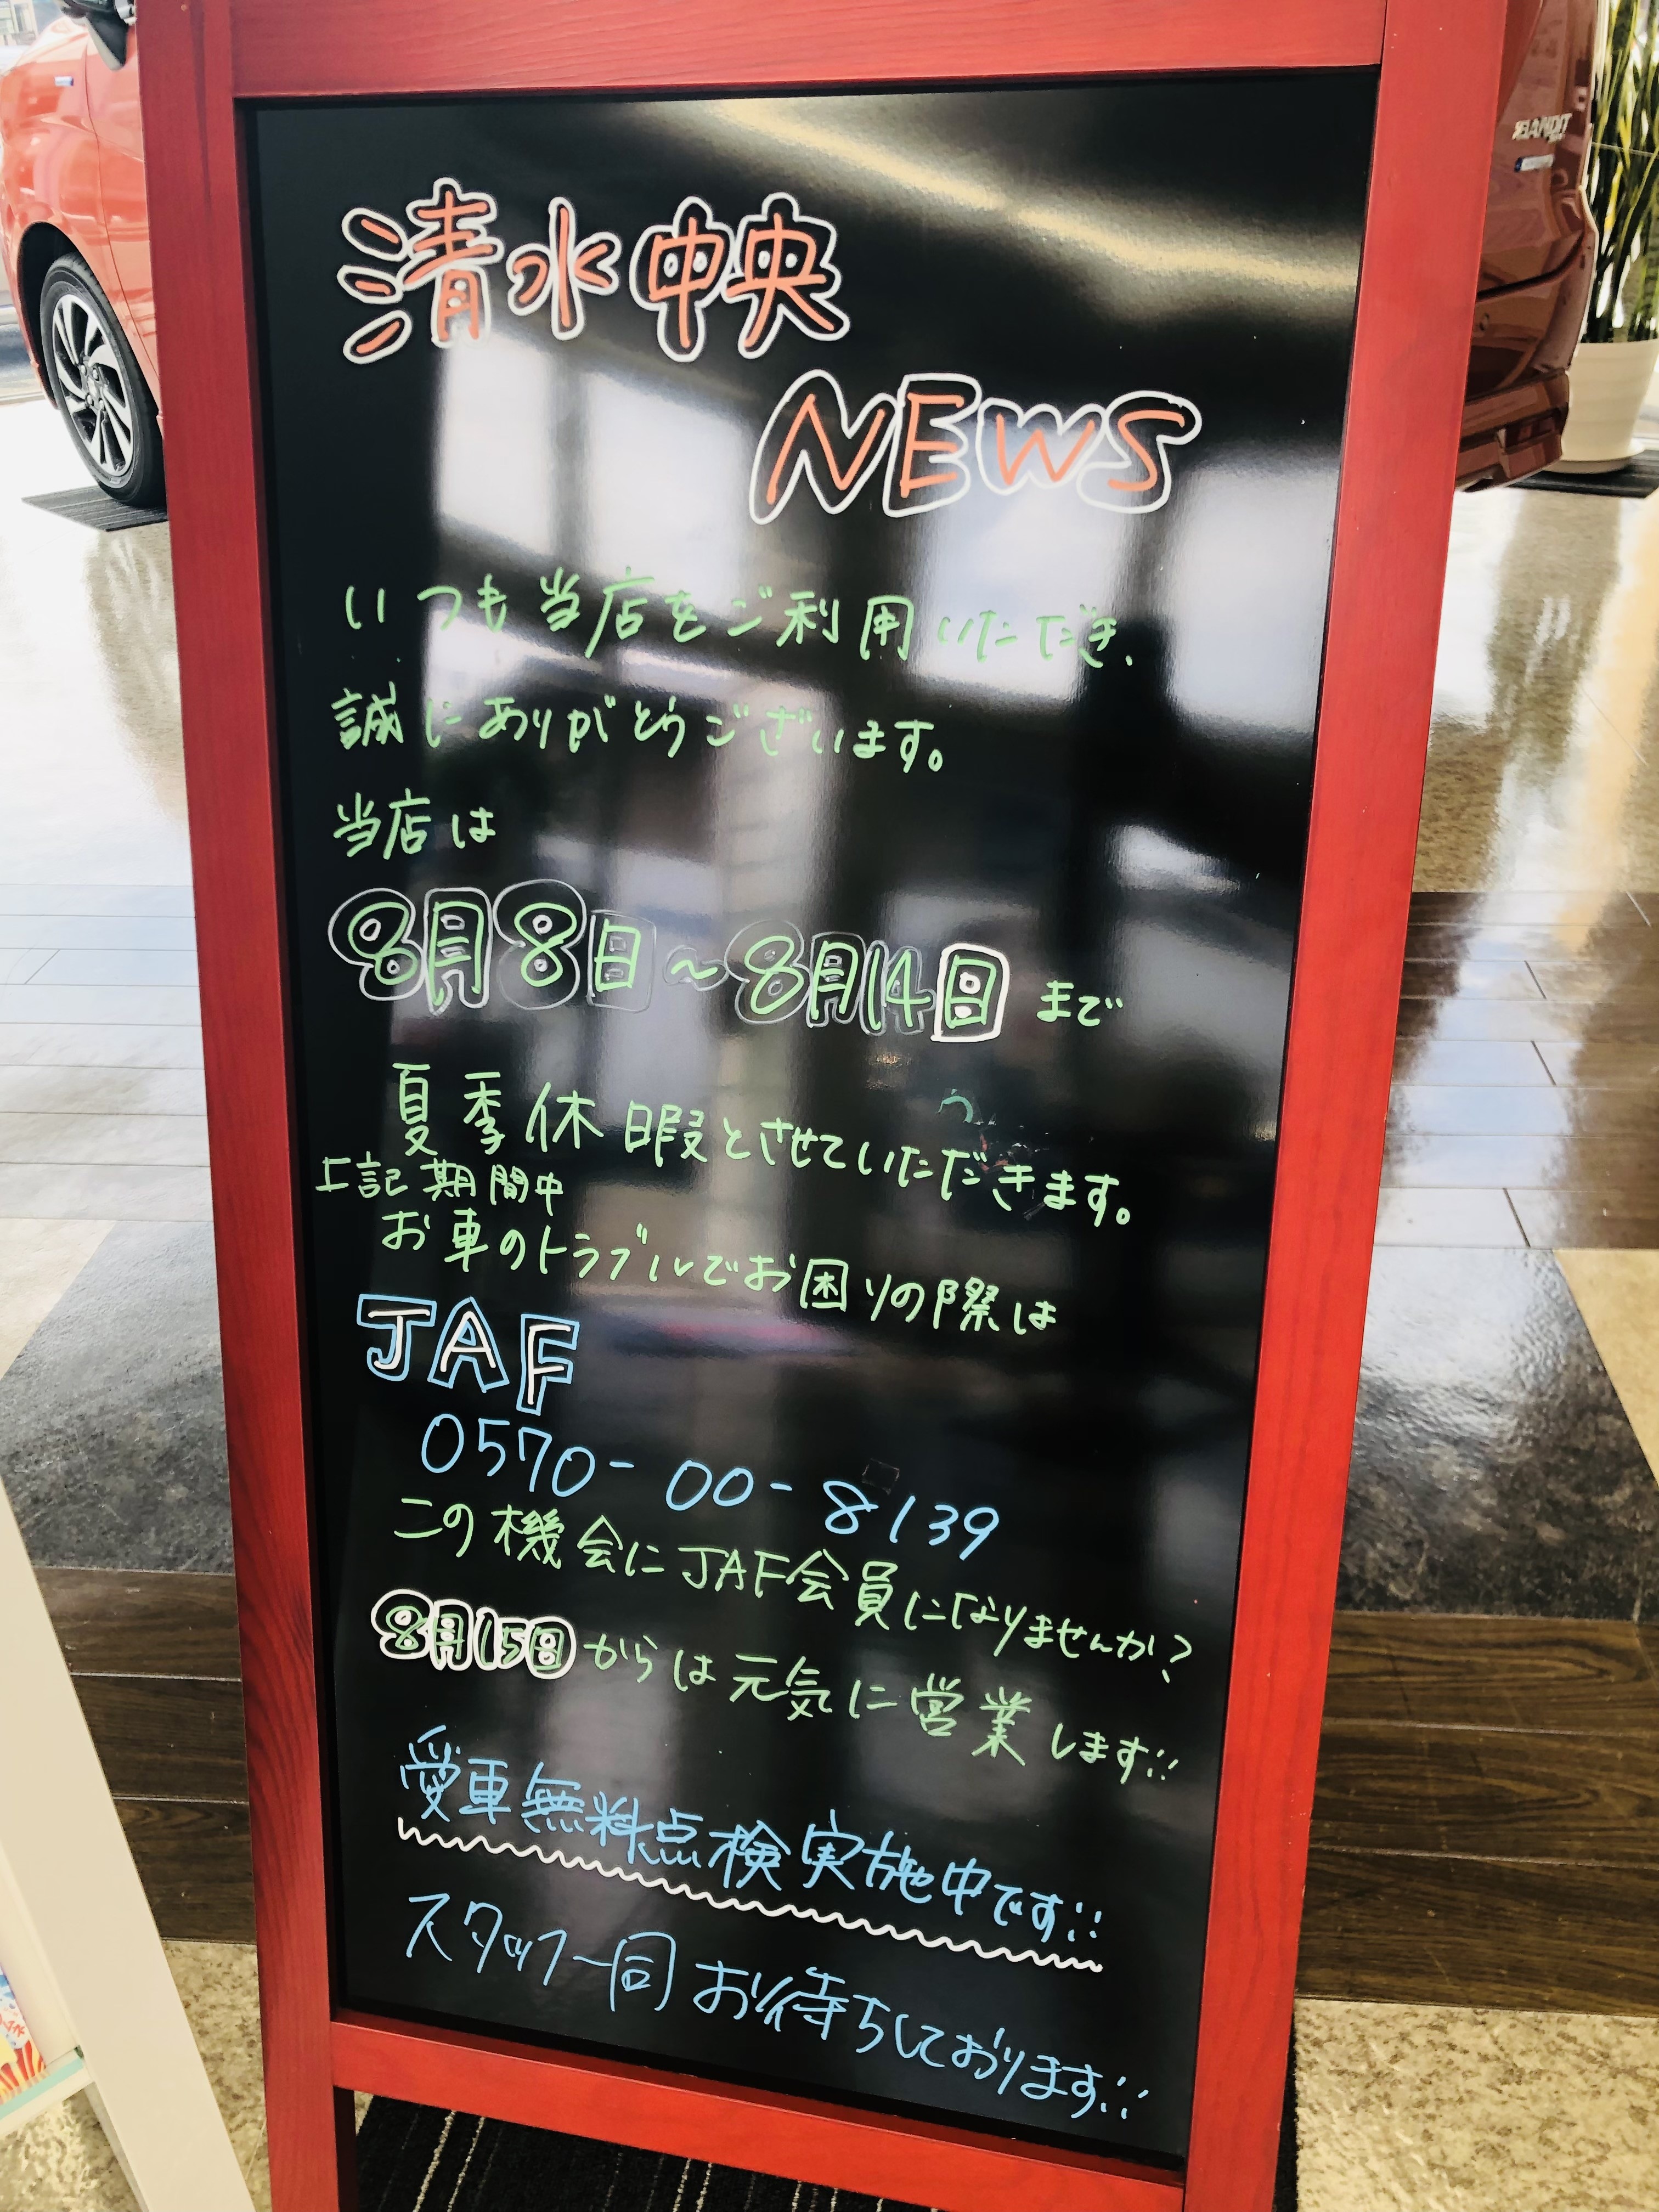 清水中央
NEWS
いつも当店をご利用いただき、
誠にありがとうございます。
当店は
8月8日~8月14日まで
夏季休暇とさせていただきます。
上記期間中
お車のトラブルでお困りの際は
JAF
0570-00-8139
この機会にJAF会員になりませんか?
8月15日からは元気に営業します!!
愛車無料点検実施中です!!
スタッフ一同お待ちしております!!
BANDIT